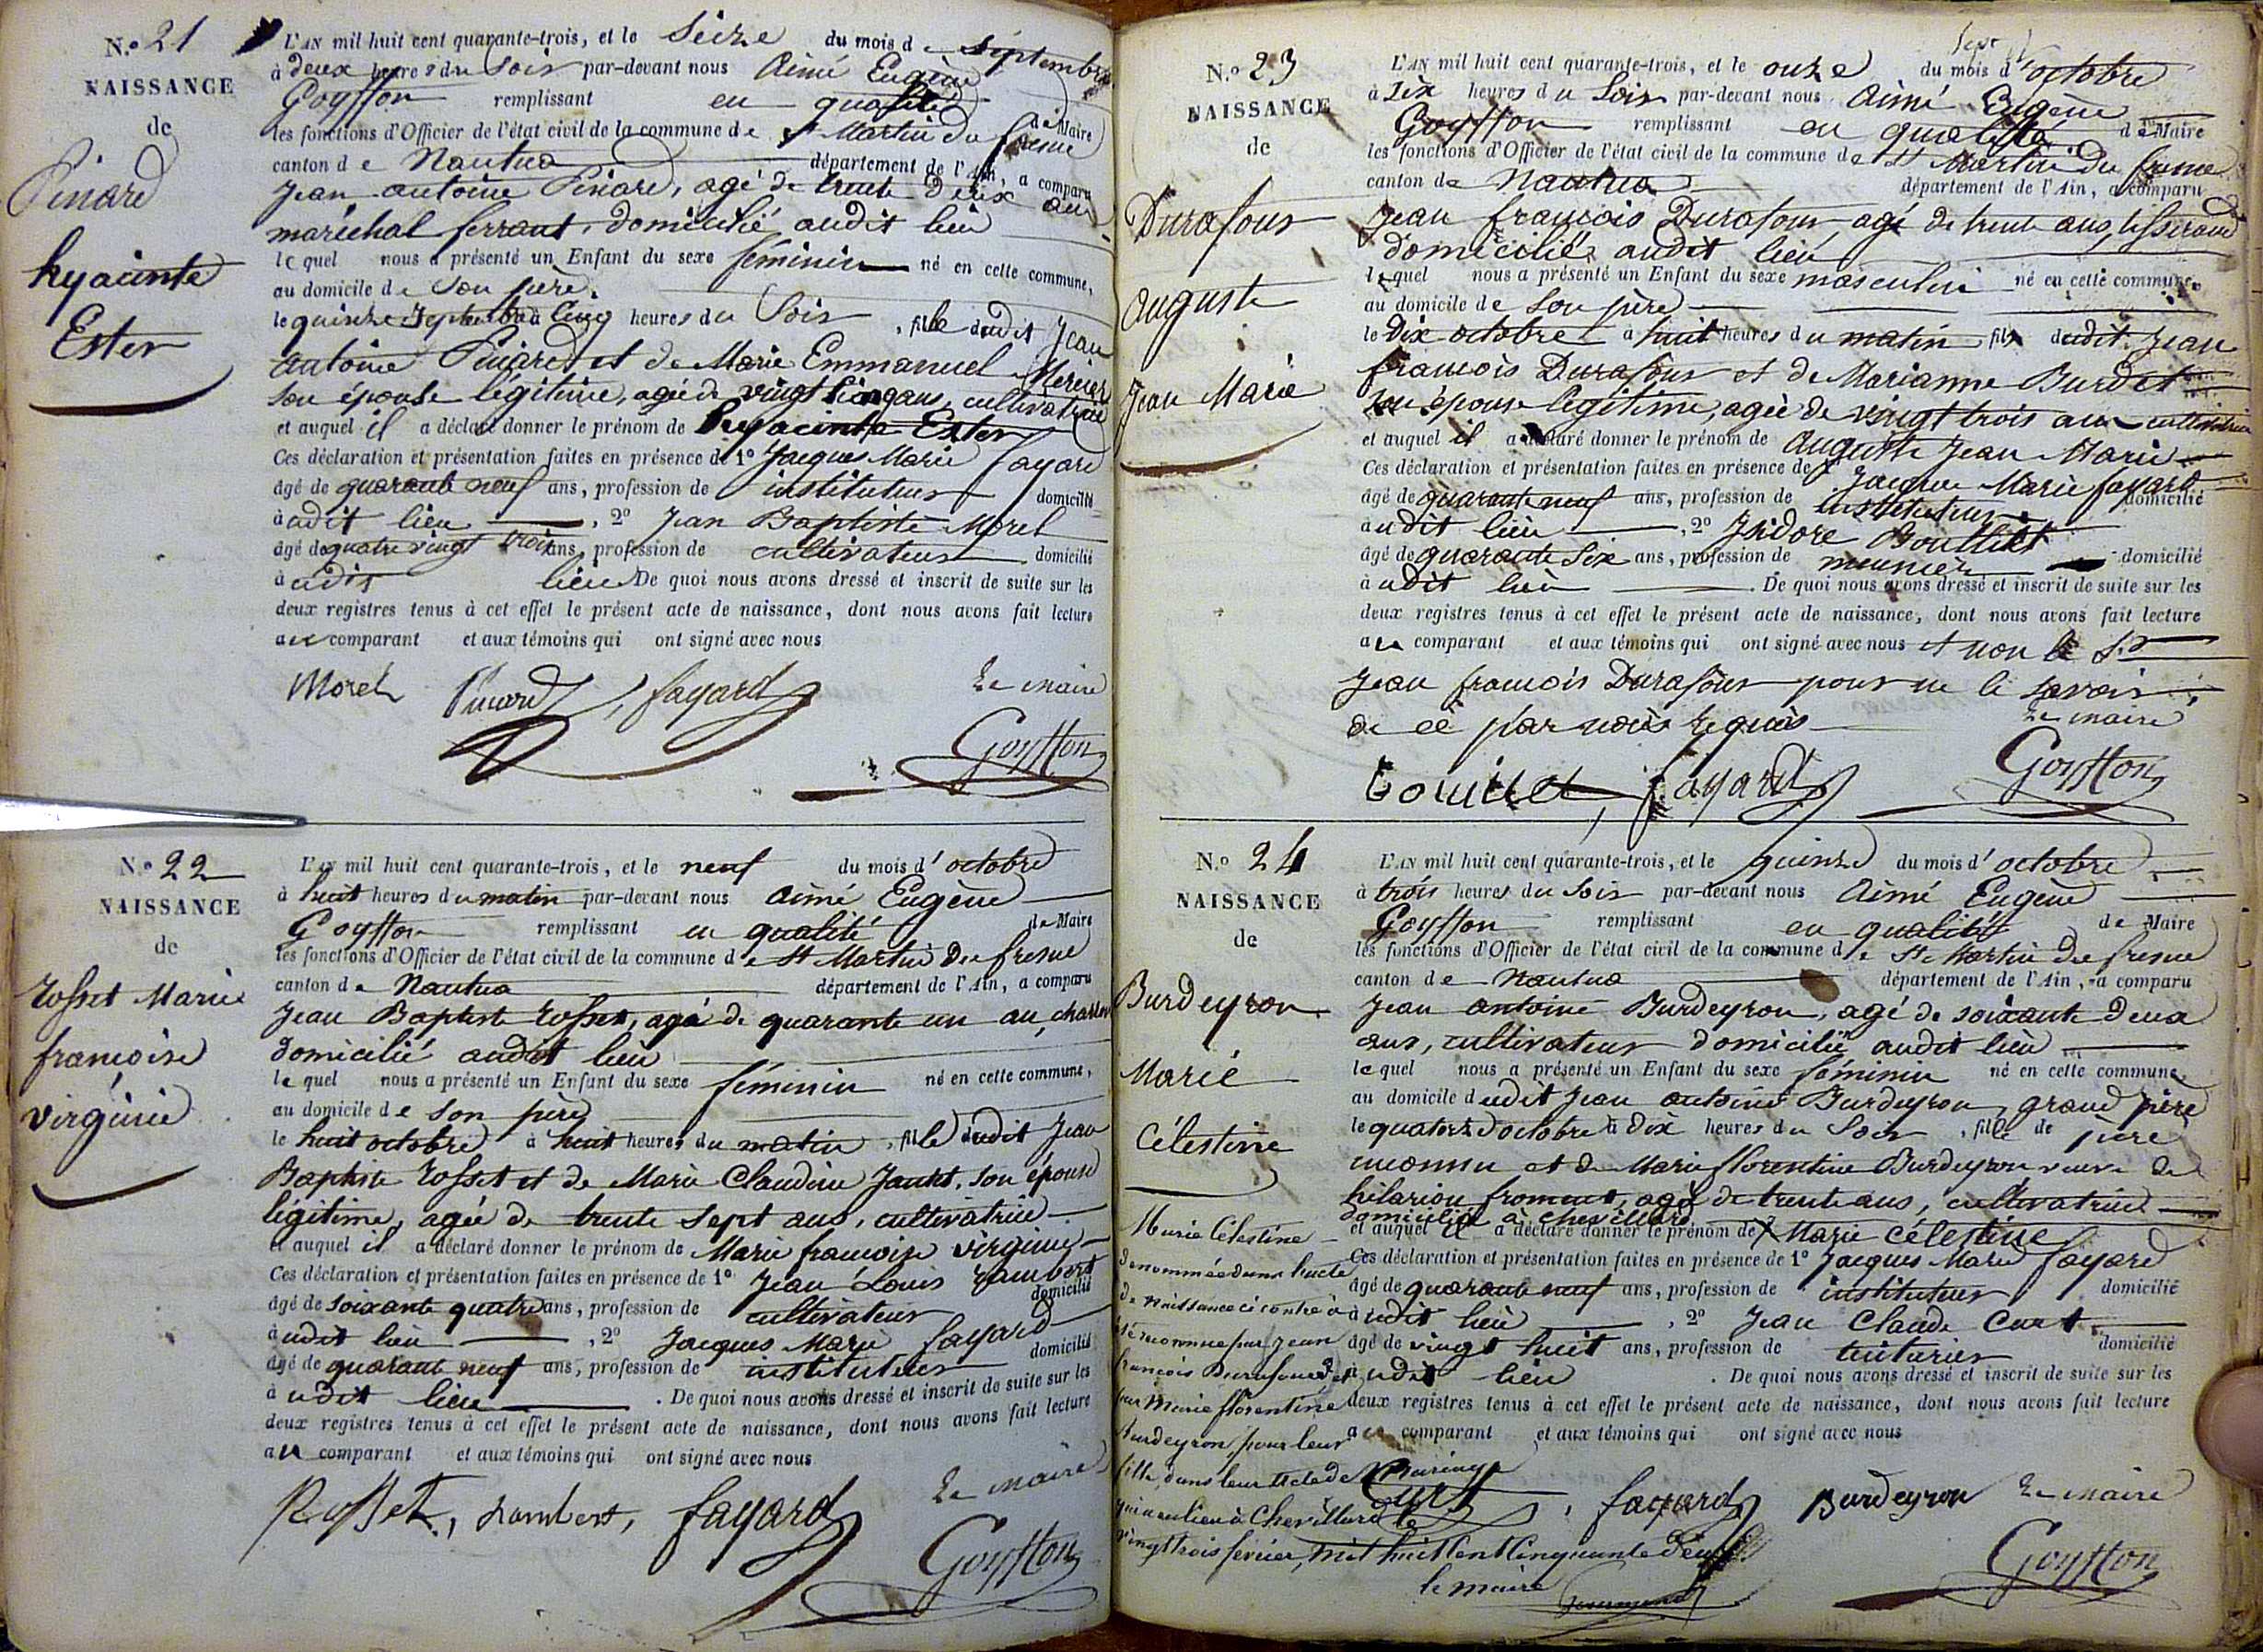 N.o 21
NAISSANCE
de
Pinard
hyacinte
Ester
L'AN mil huit cent quarante-trois, et le Seize du mois de Septembre
à deux heures du Soir par-devant nous Aimé Eugène
Goyffon remplissant en qualité de Maire
les fonctions d'Officier de l'état civil de la commune de St Martin du fresne
canton de Nantua département de l'Ain, a comparu
Jean antoine Pinard, agé de trente deux ans
maréchal ferrant, domicilié audit lieu
lequel nous a présenté un Enfant du sexe féminin né en cette commune,
au domicile de Son père.
le quinze Septembre à Cinq heures du Soir, fille dudit Jean
antoine Pinard et de Marie Emmanuel Mercier
son épouse légitime, agée de vingt cinq ans, cultivatrice
et auquel il a déclaré donner le prénom de hyacinte Ester
Ces déclaration et présentation faites en présence de 1o Jacques Marie fayard
âgé de quarante neuf ans, profession de instituteur domicilié
à udit lieu, 2o Jean Baptiste Morel
âgé de quatre vingt trois ans, profession de cultivateur domicilié
à udit lieu De quoi nous avons dressé et inscrit de suite sur les
deux registres tenus à cet effet le présent acte de naissance, dont nous avons fait lecture
au comparant et aux témoins qui ont signé avec nous
Morel Pinard, fayard Le maire
Goyffon
N.o 22
NAISSANCE
de
Rosset Marie
françoise
virginie
L'AN mil huit cent quarante-trois, et le neuf du mois d'octobre
à huit heures du matin par-devant nous Aimé Eugène
Goyffon remplissant en qualité de Maire
les fonctions d'Officier de l'état civil de la commune de St Martin du fresne
canton de Nantua département de l'Ain, a comparu
Jean Baptiste Rosset, agé de quarante un an,
domicilié audit lieu
lequel nous a présenté un Enfant du sexe féminin né en cette commune,
au domicile de son père
le huit octobre à huit heures du matin, fille dudit Jean
Baptiste Rosset et de Marie Claudine, son épouse
légitime, agée de trente sept ans, cultivatrice
et auquel il a déclaré donner le prénom de Marie françoise virginie
Ces déclaration et présentation faites en présence de 1o Jean Louis Rambert
âgé de soixante quatre ans, profession de cultivateur domicilié
à udit lieu, 2o Jacques Marie fayard
âgé de quarante neuf ans, profession de instituteur domicilié
à udit lieu. De quoi nous avons dressé et inscrit de suite sur les
deux registres tenus à cet effet le présent acte de naissance, dont nous avons fait lecture
au comparant et aux témoins qui ont signé avec nous
Rosset, Rambert, fayard Le maire
Goyffon
N.o 23
NAISSANCE
de
Durafour
auguste
Jean Marie
L'AN mil huit cent quarante-trois, et le onze du mois d'octobre
à Six heures du Soir par-devant nous Aimé Eugène
Goyffon remplissant en qualité de Maire
les fonctions d'Officier de l'état civil de la commune de St Martin du fresne
canton de Nantua département de l'Ain, a comparu
Jean françois Durafour, agé de trente ans, tisserand
domicilié audit lieu
lequel nous a présenté un Enfant du sexe masculin né en cette commune,
au domicile de Son père
le Dix octobre à huit heures du matin fils dudit Jean
françois Durafour et de Marianne Burdet
son épouse légitime, agée de vingt trois ans cultivatrice
et auquel il a déclaré donner le prénom de auguste Jean Marie
Ces déclaration et présentation faites en présence de 1o Jacques Marie fayard
âgé de quarante neuf ans, profession de instituteur domicilié
à udit lieu, 2o Isidore Bouillet
âgé de quarante Six ans, profession de meunier domicilié
à udit lieu. De quoi nous avons dressé et inscrit de suite sur les
deux registres tenus à cet effet le présent acte de naissance, dont nous avons fait lecture
au comparant et aux témoins qui ont signé avec nous et non le Sr
Jean françois Durafour pour ne le savoir
de ce par nous requis Le maire
bouillet, fayard Goyffon
N.o 24
NAISSANCE
de
Burdeyron
Marie
Célestine
L'AN mil huit cent quarante-trois, et le quinze du mois d'octobre
à trois heures du Soir par-devant nous Aimé Eugène
Goyffon remplissant en qualité de Maire
les fonctions d'Officier de l'état civil de la commune de St Martin du fresne
canton de Nantua département de l'Ain, a comparu
Jean antoine Burdeyron, agé de soixante deux
ans, cultivateur domicilié audit lieu
lequel nous a présenté un Enfant du sexe féminin né en cette commune,
au domicile dudit Jean antoine Burdeyron, grand père
le quatorze octobre à Dix heures du Soir, fille de père
inconnu et de Marie florentine Burdeyron veuve de
hilarion froment, agée de trente ans, cultivatrice
domiciliée à Chevillard
et auquel il a déclaré donner le prénom de Marie Célestine
Ces déclaration et présentation faites en présence de 1o Jacques Marie fayard
âgé de quarante neuf ans, profession de instituteur domicilié
à udit lieu, 2o Jean Claude Curt
âgé de vingt huit ans, profession de teinturier domicilié
à udit lieu. De quoi nous avons dressé et inscrit de suite sur les
deux registres tenus à cet effet le présent acte de naissance, dont nous avons fait lecture
au comparant et aux témoins qui ont signé avec nous
Curt, fayard Burdeyron Le maire
Goyffon
Marie Célestine
denommée dans l'acte
de naissance ci contre a
été reconnue par Jean
françois Durafour et
par Marie florentine
Burdeyron, pour leur
fille, dans leur acte de Mariage
qui a eu lieu à Chevillard le
vingt trois fevrier, mil huit cent Cinquante deux
le maire